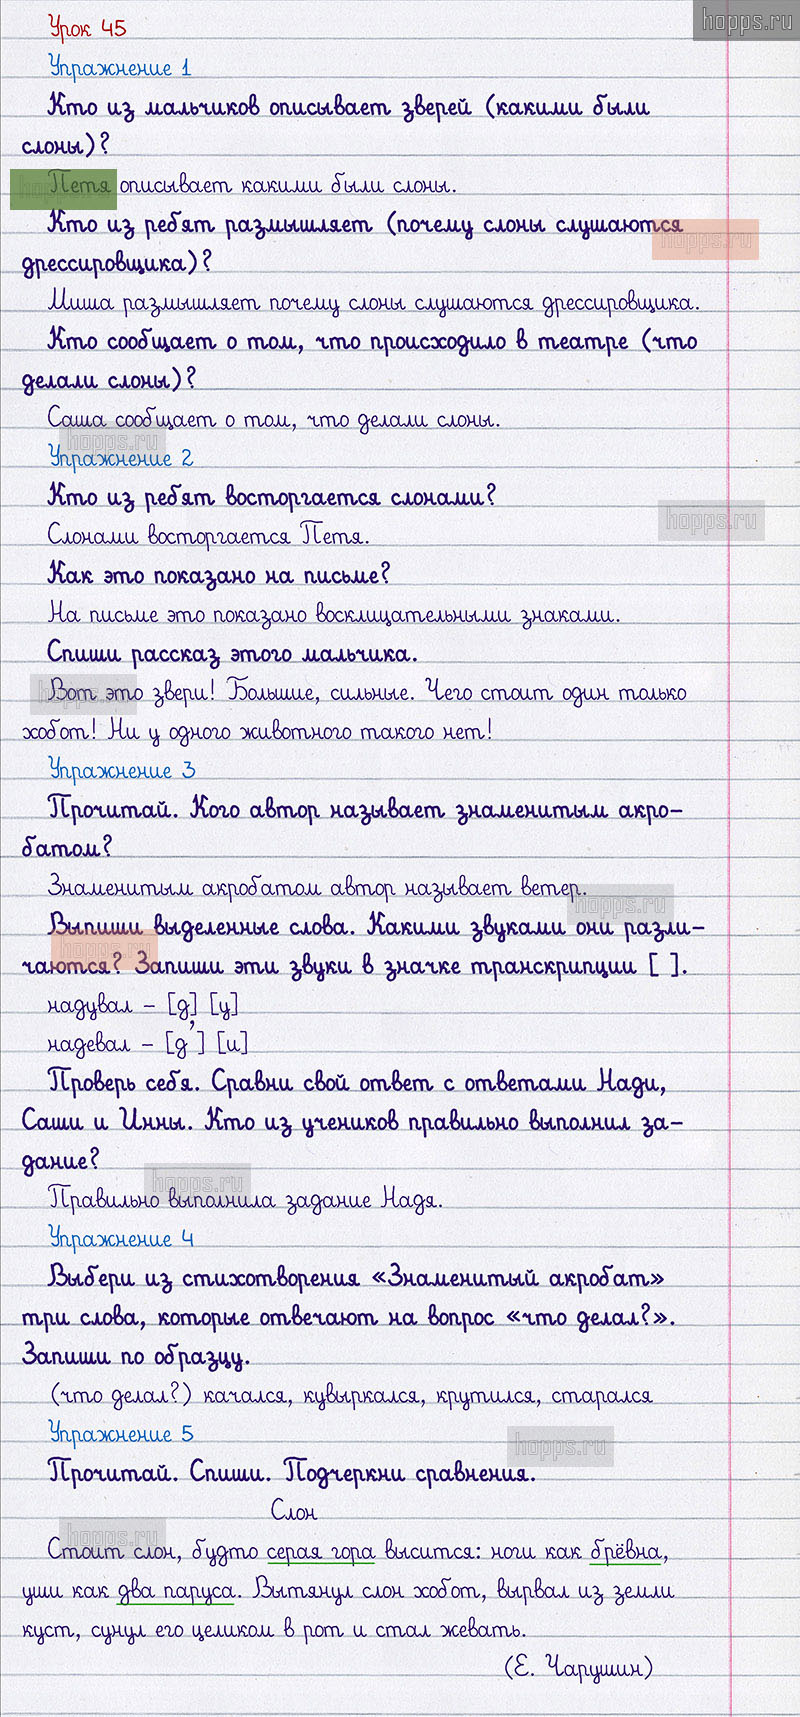 hopps.ru
Урок 45
Упражнение 1
Кто из мальчиков описывает зверей (какими были
слоны)?
Петя описывает какими были слоны.
Кто из ребят размышляет (почему слоны слушаются
hopps.ru
дрессировщика)?
Миша размышляет почему слоны слушаются дрессировщика.
Кто сообщает о том, что происходило в театре (что
делали слоны)?
Саша сообщает о том, что делали слоны.
hopps.ru
Упражнение 2
Кто из ребят восторгается слонами?
hopps.ru
Слонами восторгается Петя.
Как это показано на письме?
На письме это показано восклицательными знаками.
Спиши рассказ этого мальчика.
hopps.ru
Вот это звери! Большие, сильные. Чего стоит один только
хобот! Ни у одного животного такого нет!
Упражнение 3
Прочитай. Кого автор называет знаменитым акро-
батом?
Знаменитым акробатом автор называет ветер.
hopps.ru
Выпиши выделенные слова. Какими звуками они разли-
hopps.ru
чаются? Запиши эти звуки в значке транскрипции [ ].
надувал - [д] [у]
надевал - [д'] [и]
Проверь себя. Сравни свой ответ с ответами Нади,
Саши и Инны. Кто из учеников правильно выполнил за-
дание?
hopps.ru
Правильно выполнила задание Надя.
Упражнение 4
Выбери из стихотворения «Знаменитый акробат»
три слова, которые отвечают на вопрос «что делал?».
Запиши по образцу.
(что делал?) качался, кувыркался, крутился, старался
Упражнение 5
hopps.ru
Прочитай. Спиши. Подчеркни сравнения.
Слон
hopps.ru
Стоит слон, будто серая гора высится: ноги как брёвна,
уши как два паруса. Вытянул слон хобот, вырвал из земли
куст, сунул его целиком в рот и стал жевать.
(Е. Чарушин)